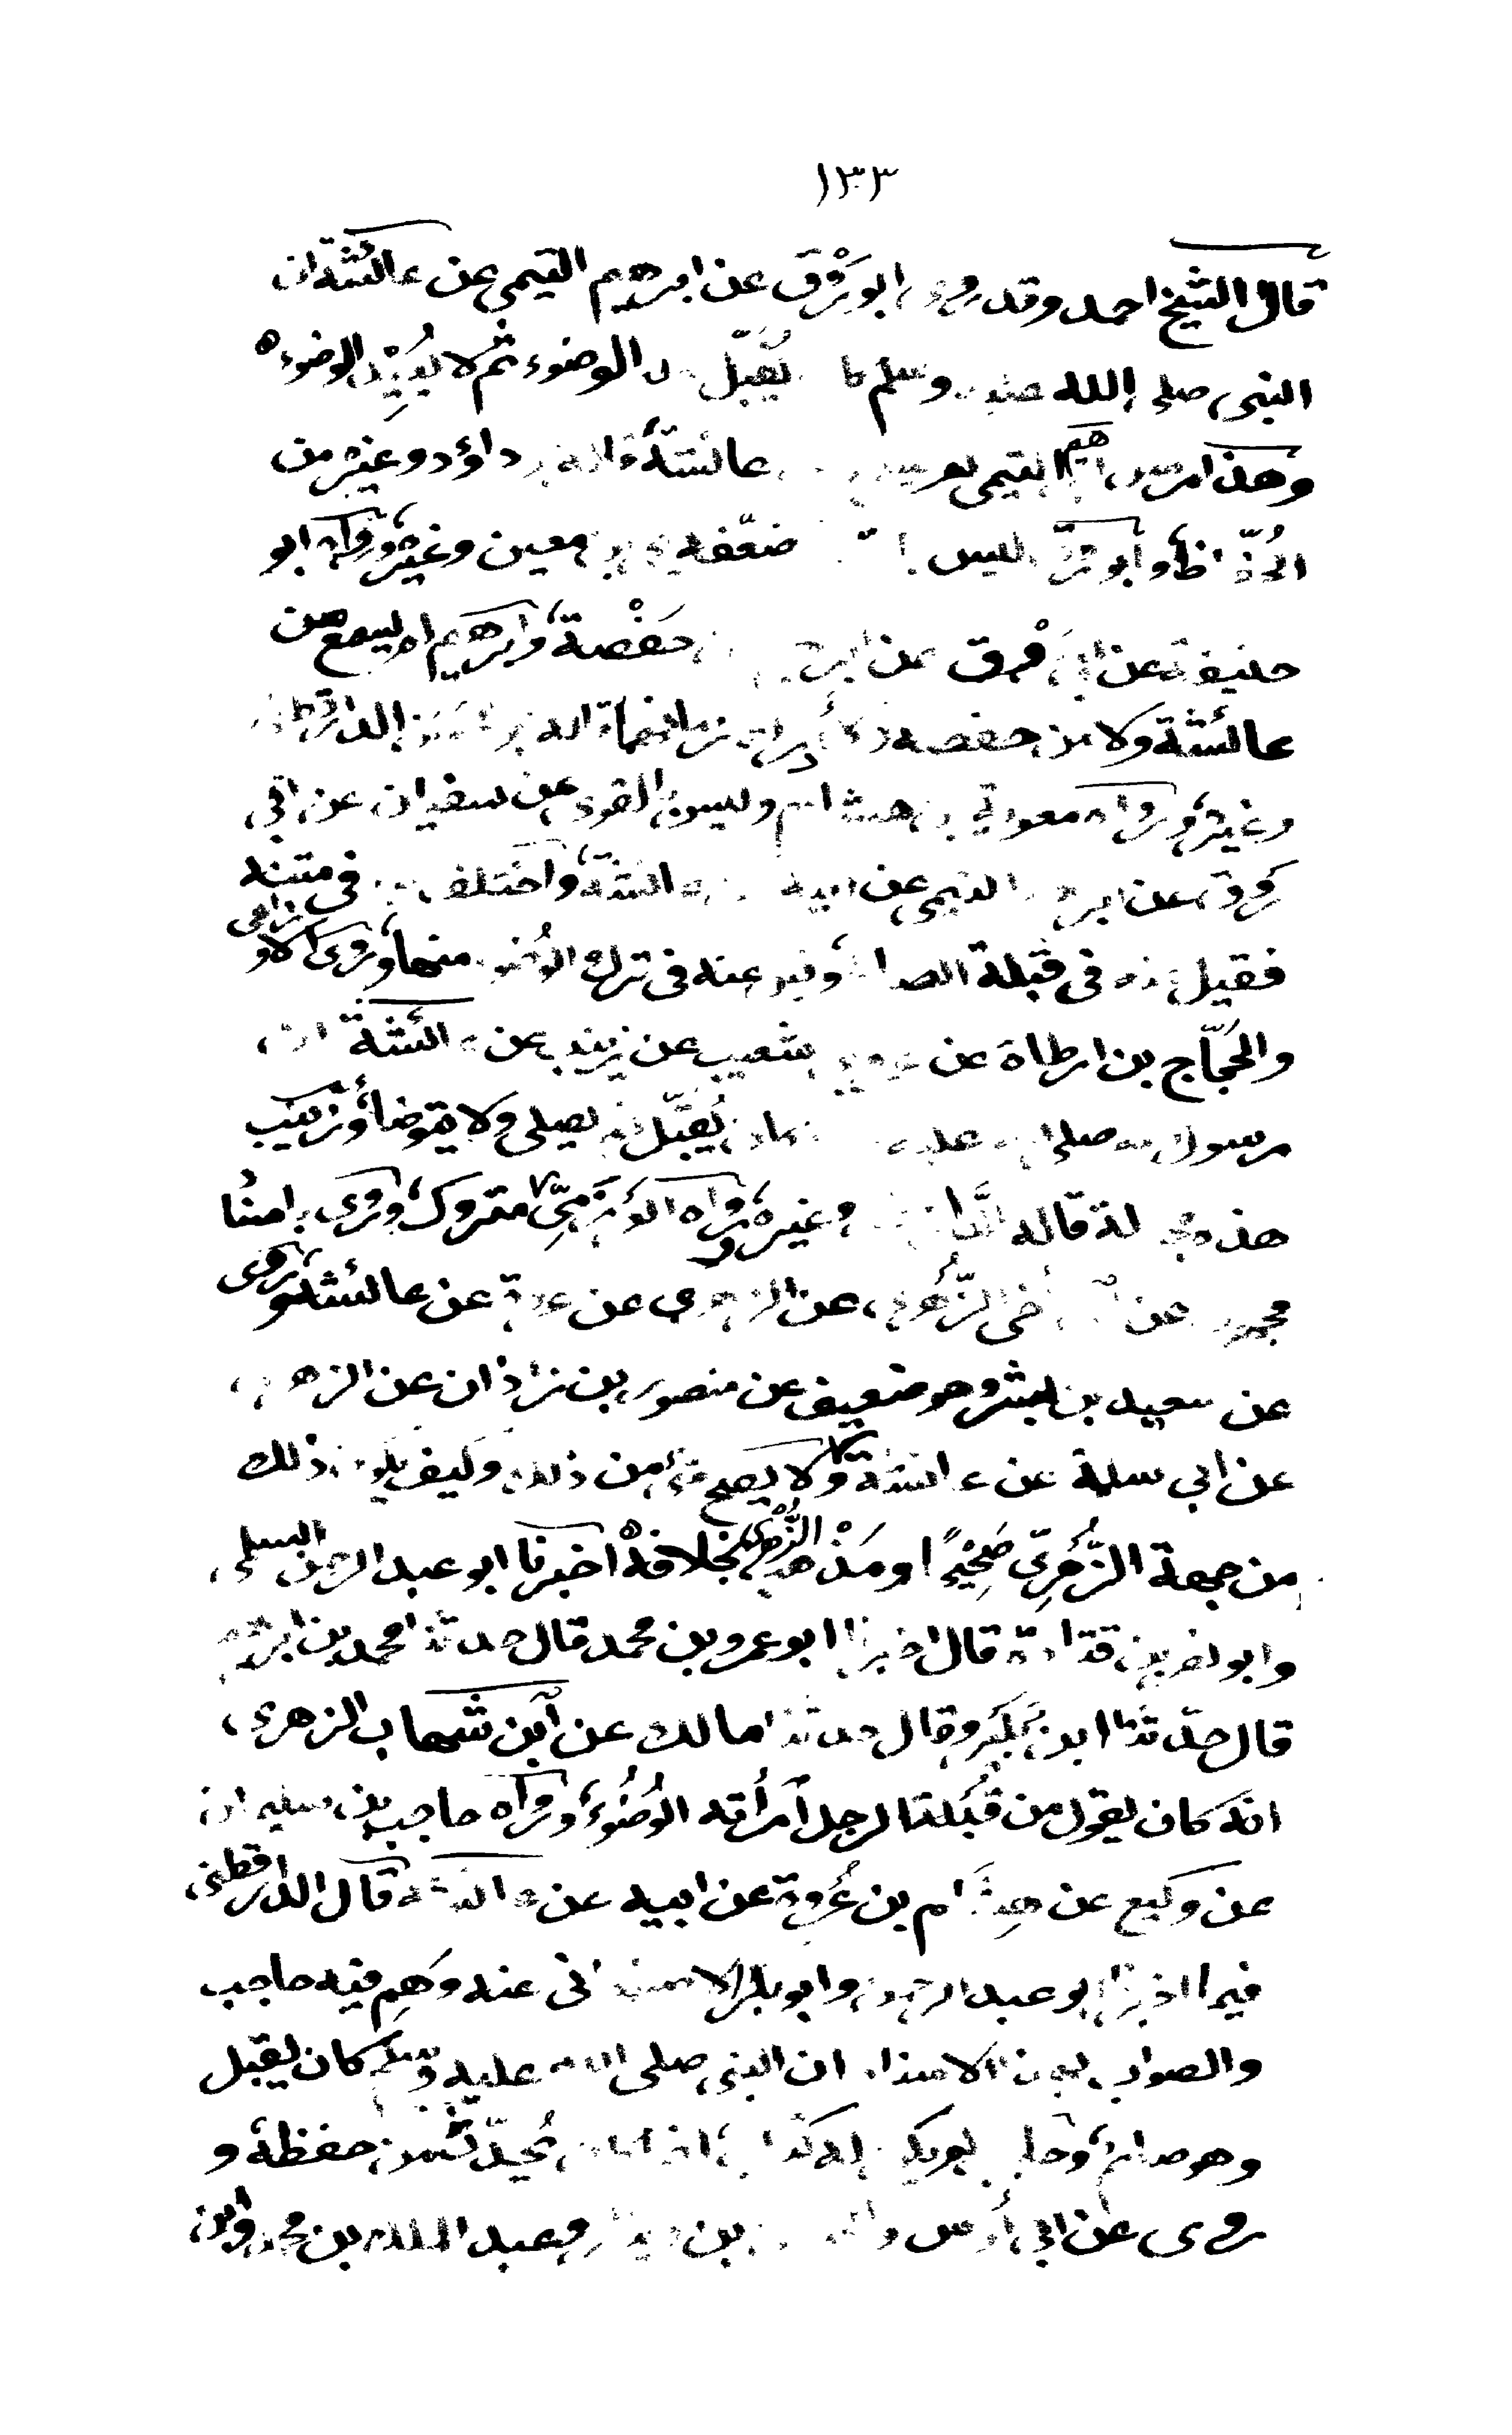 ١٣٣
قال الشيخ احمد وقد روى ابو رَوْق عن ابرهيم التيمي عن عائشة ان
النبي صلى الله عليه وسلم كان يُقبّل بعد الوضوء ثم لا يُعِيْد الوضوء
وهذا مرسل ابرهيم التيمي لم يسمع من عائشة قاله ابو داؤد وغيره من
الحُفّاظ وابو روق ليس ضعّفه يحيى بن معين وغيره ورواه ابو
حنيفة عن ابي رَوْق عن ابرهيم عن حَفْصة وابرهيم لم يسمع من
عائشة ولا من حفصة ولا أدرك زمانهما قاله الدارقطني
وغيره ورواه معوية بن هشام وليس بالقوي عن سفيان عن ابي
روق عن ابرهيم التيمي عن ابيه عن عائشة واختلف عليه في متنه
فقيل عنه في قُبلة الصائم وقيل عنه في ترك الوُضوء منها وروى الاوزاعي
والحَجّاج بن ارطاة عن عمرو بن شعيب عن زينب عن عائشة ان
رسول الله صلى الله عليه وسلم كان يُقَبّل ثم يصلي ولا يتوضأ وزينب
هذه مجهولة قاله الدارقطني وغيره ورواه العَرْزَمِيّ متروك وروى ايضًا
مجهول عن ابن أخي الزُّهري عن الزهري عن عروة عن عائشة وروى
عن سعيد بن بشر وهو ضعيف عن منصور بن زاذان عن الزهري
عن ابي سلمة عن عائشة ولا يصح شئ من ذلك وكيف يكون ذلك
من جهة الزُّهرِيّ صَحِيْحًا ومَذْهب الزُّهري بخلافه اخبرنا ابو عبد الرحمن السلمي
وابو نصر بن قتادة قال اخبرنا ابو عمرو بن محمد قال حدثنا محمد بن ابرهيم
قال حدّثنا ابن بُكَيْر وقال حدثنا مالك عن ابن شهاب الزهري
انه كان يقول من قُبْلة الرجل امرأته الوُضُوءُ ورواه حاجب بن سليمان
عن وكيع عن هِشام بن عُروة عن ابيه عن عائشة قال الدارقطني
فيما اخبرنا ابو عبد الرحمن وابو بكر الاصبهاني عنه وَهِم فيه حاجب
والصواب بهذا الاسناد ان النبي صلى الله عليه وسلم كان يقبل
وهو صائم وحاجب لم يكن له كتاب انما كان يُحدّث من حفظه و
روى عن ابي أويس بن وعبد الملك بن محمد وابن